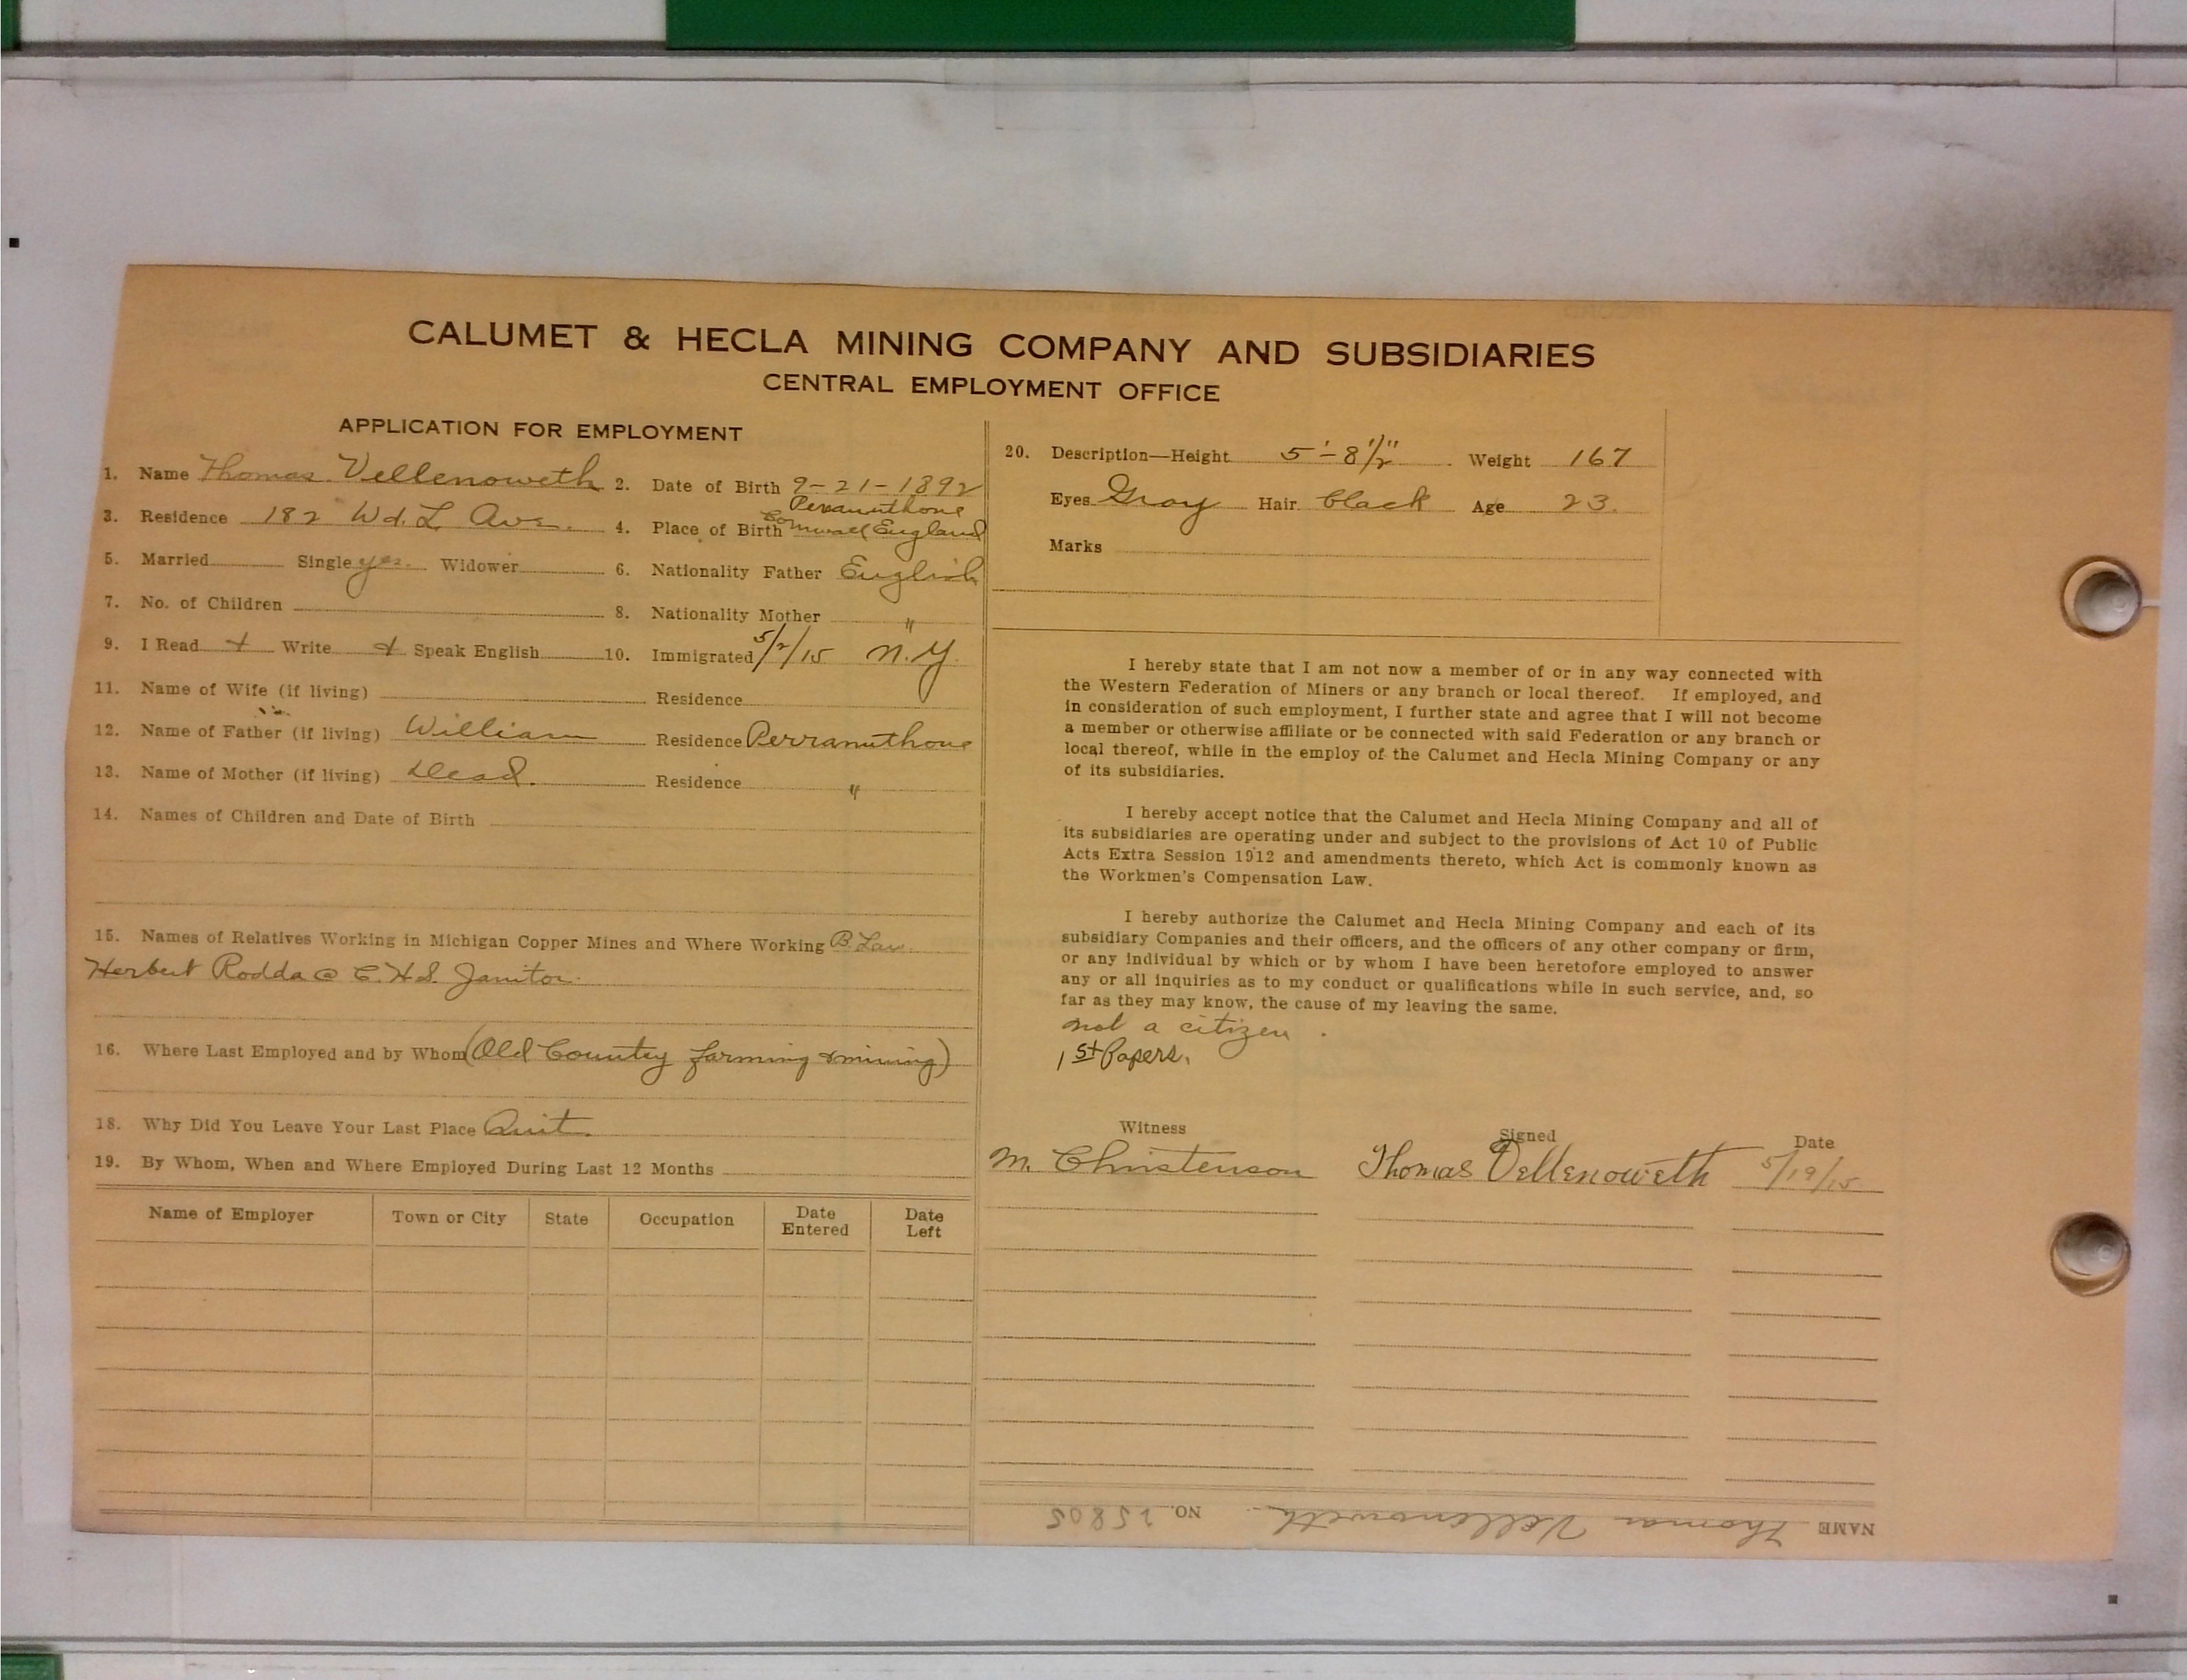 CALUMET & HECLA MINING COMPANY AND SUBSIDIARIES
CENTRAL EMPLOYMENT OFFICE
APPLICATION FOR EMPLOYMENT
1. Name Thomas Vellenoweth 2. Date of Birth 9-21-1892
3. Residence 182 Wd. L Ave. 4. Place of Birth Perranuthone Cornwall England
5. Married Single yes. Widower 6. Nationality Father English
7. No. of Children 8. Nationality Mother "
9. I Read + Write + Speak English 10. Immigrated 5/2/15 N.Y.
11. Name of Wife (if living) Residence
12. Name of Father (if living) William Residence Perranuthone
13. Name of Mother (if living) Dead. Residence "
14. Names of Children and Date of Birth
15. Names of Relatives Working in Michigan Copper Mines and Where Working B. Law.
Herbert Rodda @ C.H.S. Janitor.
16. Where Last Employed and by Whom (Old Country farming & mining)
18. Why Did You Leave Your Last Place Quit.
19. By Whom, When and Where Employed During Last 12 Months
Name of Employer Town or City State Occupation Date Entered Date Left
20. Description—Height 5'-8 1/2" Weight 167
Eyes Gray Hair black Age 23.
Marks
I hereby state that I am not now a member of or in any way connected with
the Western Federation of Miners or any branch or local thereof. If employed, and
in consideration of such employment, I further state and agree that I will not become
a member or otherwise affiliate or be connected with said Federation or any branch or
local thereof, while in the employ of the Calumet and Hecla Mining Company or any
of its subsidiaries.
I hereby accept notice that the Calumet and Hecla Mining Company and all of
its subsidiaries are operating under and subject to the provisions of Act 10 of Public
Acts Extra Session 1912 and amendments thereto, which Act is commonly known as
the Workmen's Compensation Law.
I hereby authorize the Calumet and Hecla Mining Company and each of its
subsidiary Companies and their officers, and the officers of any other company or firm,
or any individual by which or by whom I have been heretofore employed to answer
any or all inquiries as to my conduct or qualifications while in such service, and, so
far as they may know, the cause of my leaving the same.
not a citizen.
1st Papers.
Witness Signed Date
M. Christenson Thomas Vellenoweth 5/19/15
NAME Thomas Vellenoweth. NO. 25805